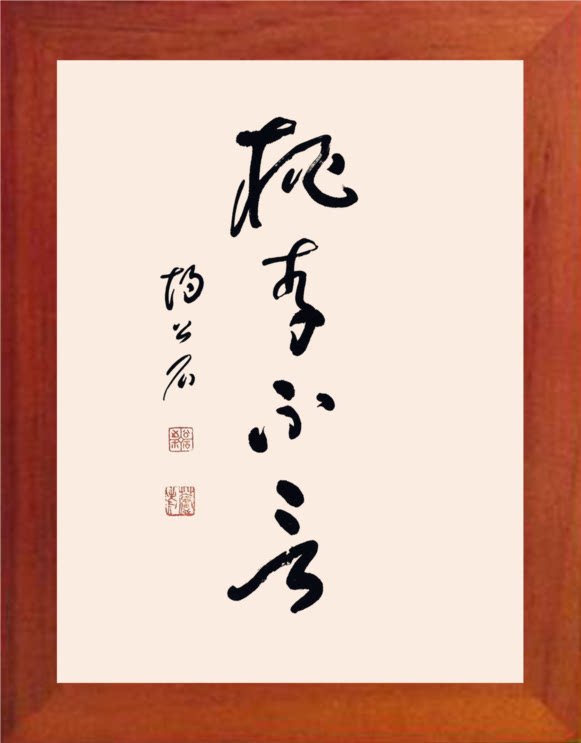 桃李不言
杨公石